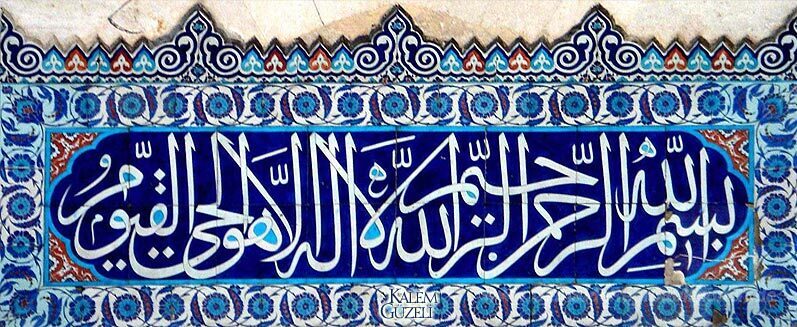 بسم الله الرحمن الرحيم الله لا اله الا هو الحي القيوم
KALEM
GÜZELİ